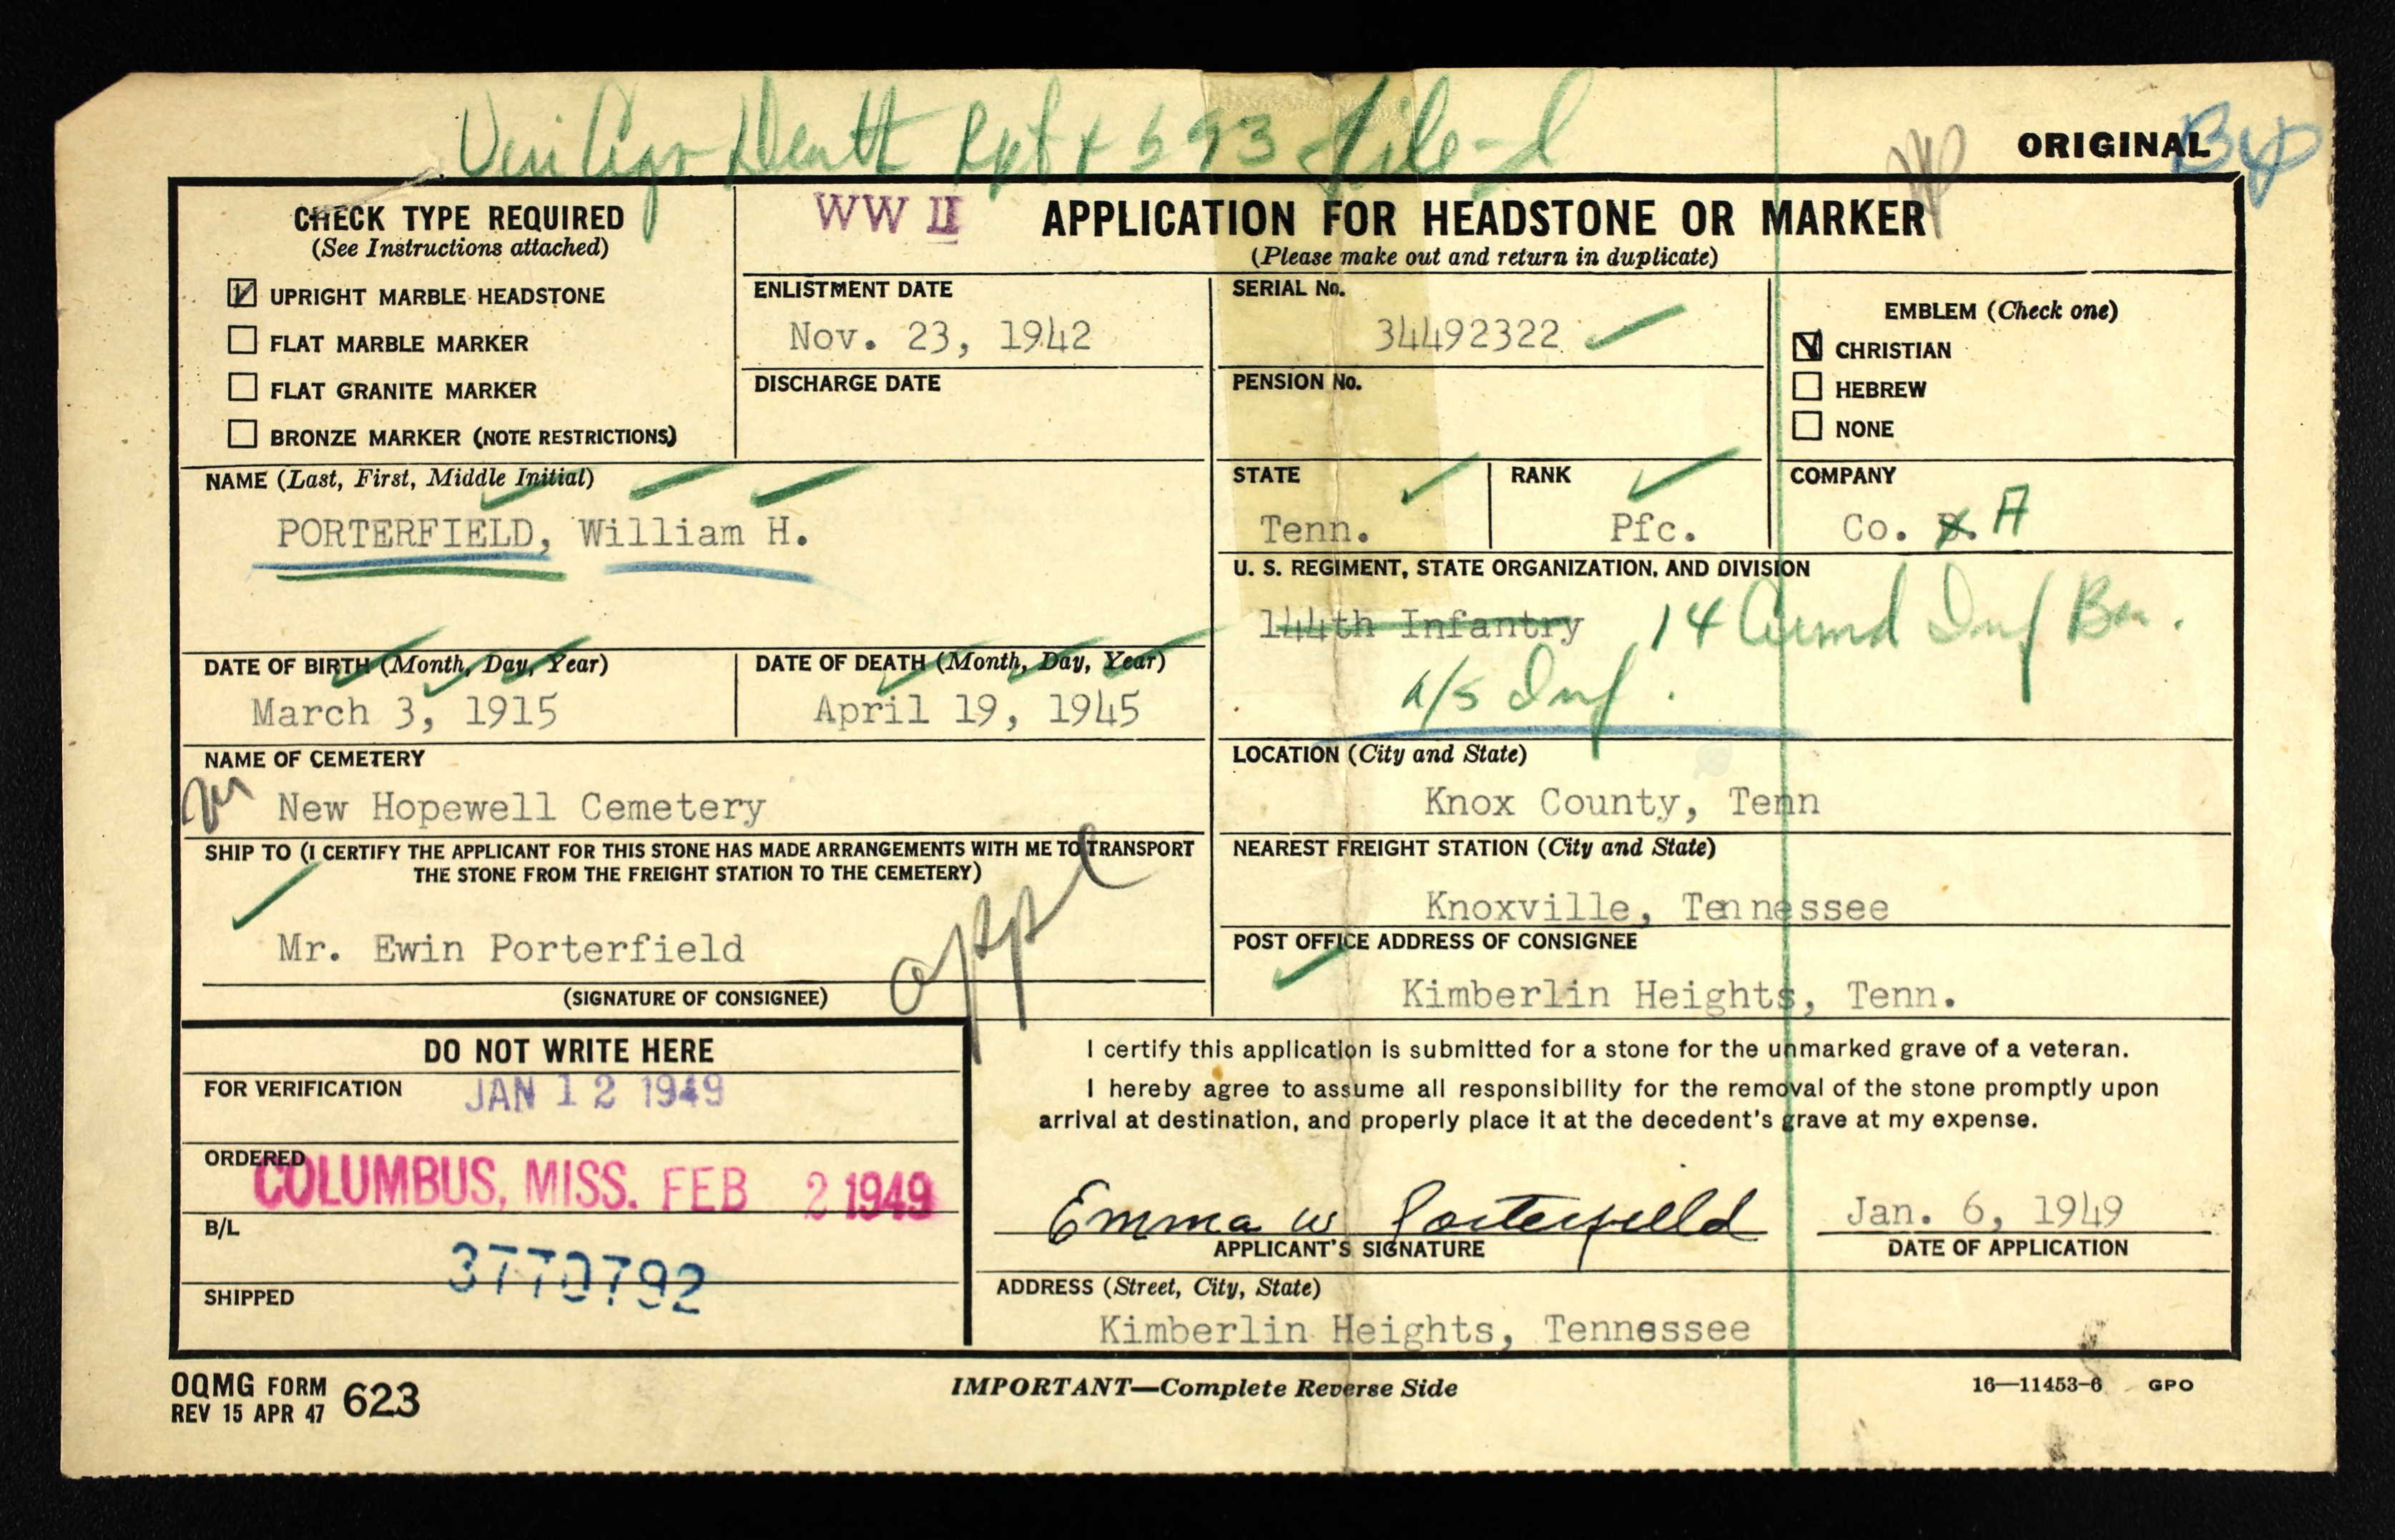 Death Rpt + 593 file-
ORIGINAL
CHECK TYPE REQUIRED
(See Instructions attached)
UPRIGHT MARBLE HEADSTONE
FLAT MARBLE MARKER
FLAT GRANITE MARKER
BRONZE MARKER (NOTE RESTRICTIONS)
WW II
APPLICATION FOR HEADSTONE OR MARKER
(Please make out and return in duplicate)
ENLISTMENT DATE
Nov. 23, 1942
DISCHARGE DATE
SERIAL No.
34492322
PENSION No.
EMBLEM (Check one)
CHRISTIAN
HEBREW
NONE
NAME (Last, First, Middle Initial)
PORTERFIELD, William H.
STATE
Tenn.
RANK
Pfc.
COMPANY
Co. A
U. S. REGIMENT, STATE ORGANIZATION, AND DIVISION
144th Infantry 14 Armd Inf Bn.
a/s Inf.
DATE OF BIRTH (Month, Day, Year)
March 3, 1915
DATE OF DEATH (Month, Day, Year)
April 19, 1945
NAME OF CEMETERY
New Hopewell Cemetery
LOCATION (City and State)
Knox County, Tenn
SHIP TO (I CERTIFY THE APPLICANT FOR THIS STONE HAS MADE ARRANGEMENTS WITH ME TO TRANSPORT
THE STONE FROM THE FREIGHT STATION TO THE CEMETERY)
Mr. Ewin Porterfield
appl
(SIGNATURE OF CONSIGNEE)
NEAREST FREIGHT STATION (City and State)
Knoxville, Tennessee
POST OFFICE ADDRESS OF CONSIGNEE
Kimberlin Heights, Tenn.
DO NOT WRITE HERE
FOR VERIFICATION JAN 12 1949
ORDERED
COLUMBUS, MISS. FEB 2 1949
B/L
3770792
SHIPPED
I certify this application is submitted for a stone for the unmarked grave of a veteran.
I hereby agree to assume all responsibility for the removal of the stone promptly upon
arrival at destination, and properly place it at the decedent's grave at my expense.
Emma W Porterfield
APPLICANT'S SIGNATURE
Jan. 6, 1949
DATE OF APPLICATION
ADDRESS (Street, City, State)
Kimberlin Heights, Tennessee
OQMG FORM 623
REV 15 APR 47
IMPORTANT—Complete Reverse Side
16—11453-6 GPO